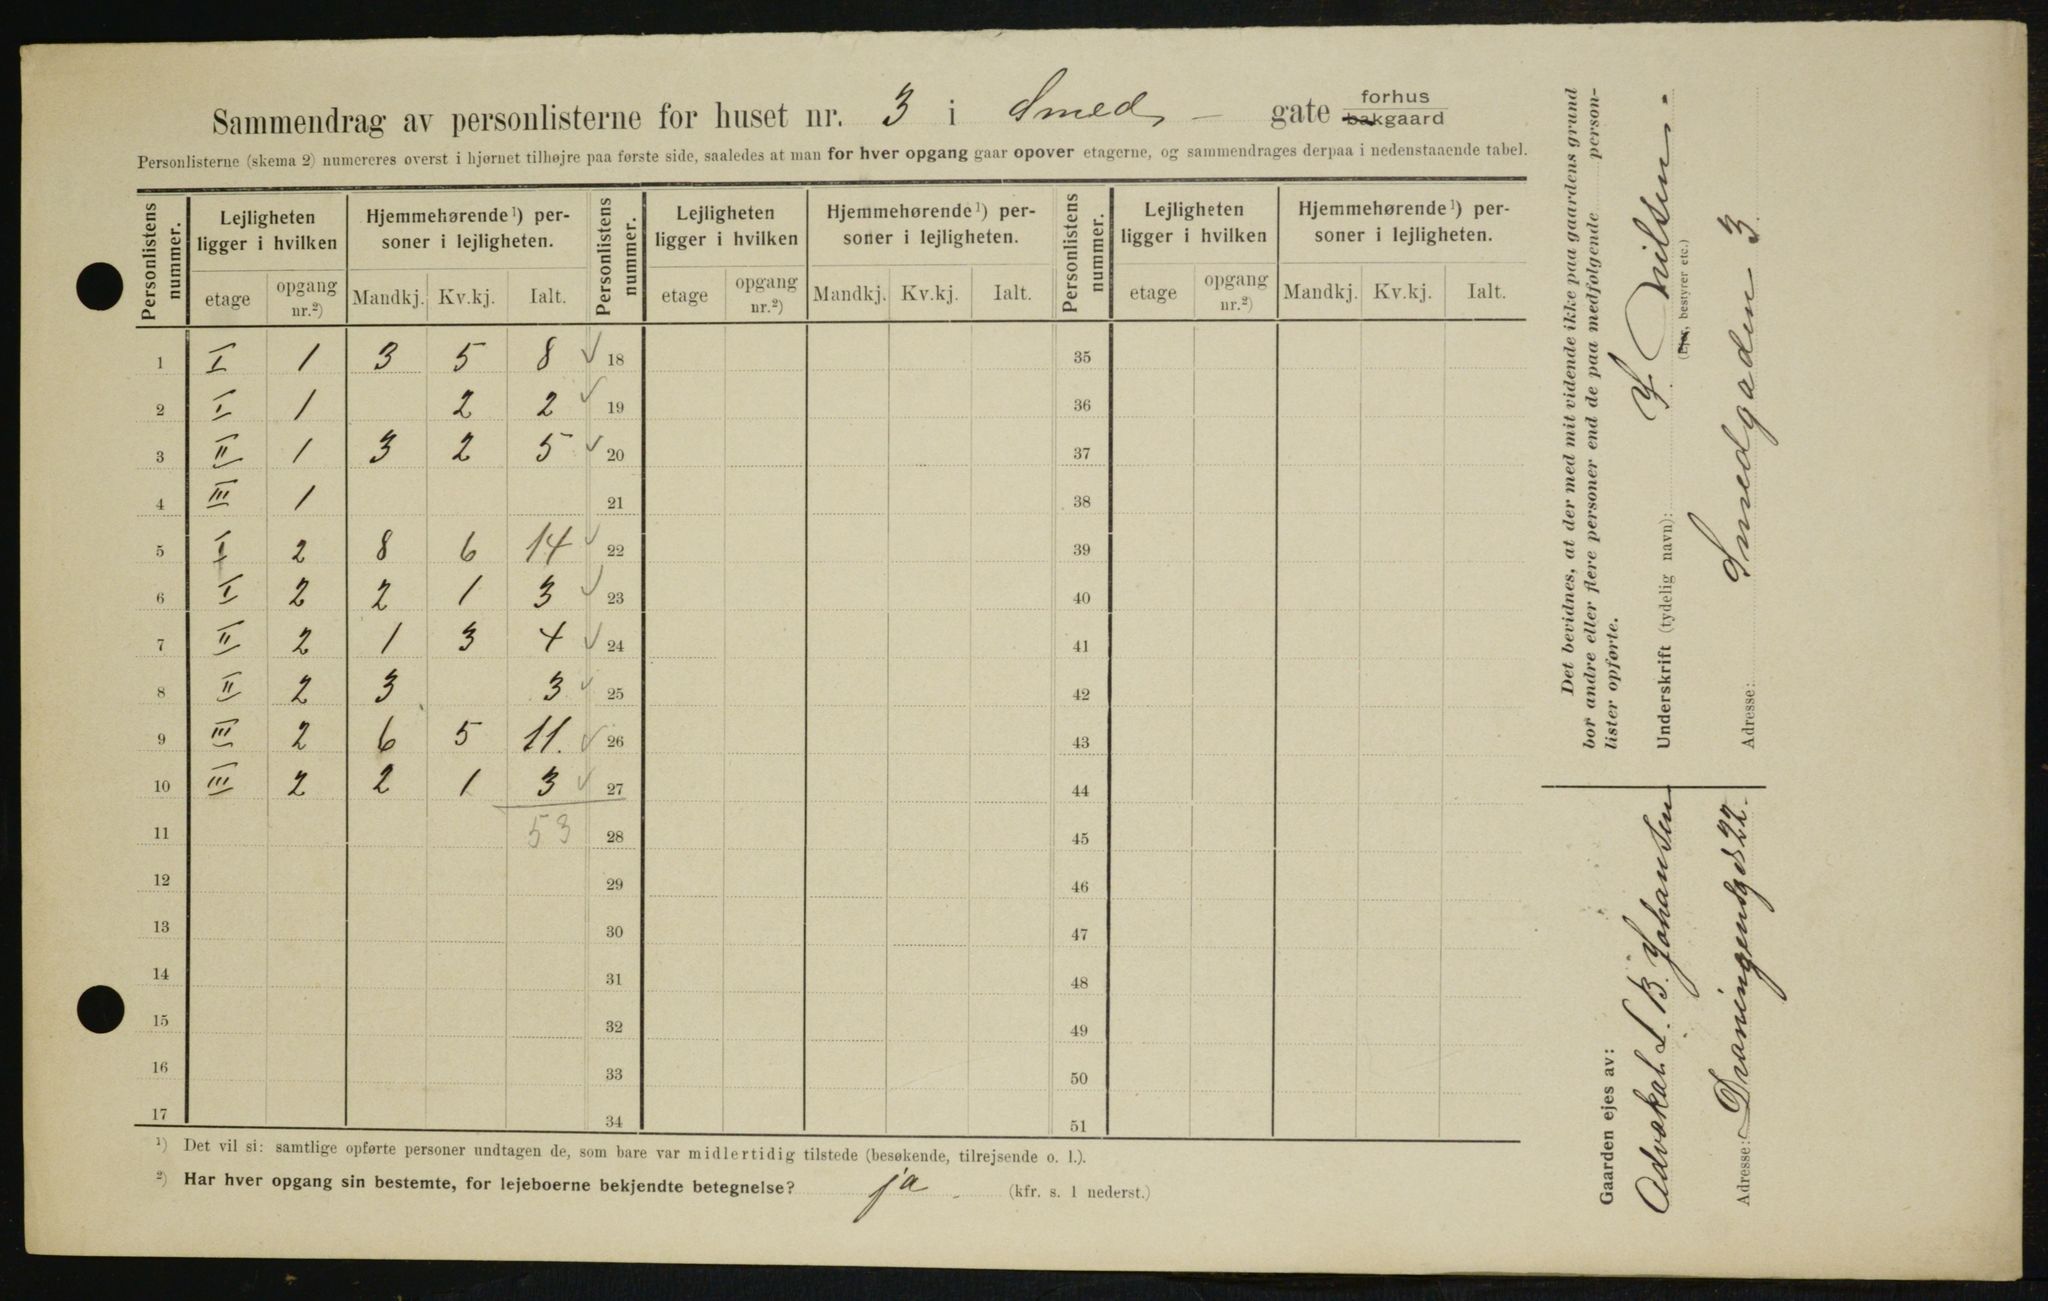 Sammendrag av personlisterne for huset nr. 3 i Smed- gate forhus
bakgaard
Personlisterne (skema 2) numereres øverst i hjørnet tilhøjre paa første side, saaledes at man for hver opgang gaar opover etagerne, og sammendrages derpaa i nedenstaaende tabel.
Personlistens nummer. Lejligheten ligger i hvilken Hjemmehørende¹) personer i lejligheten. Personlistens nummer. Lejligheten ligger i hvilken Hjemmehørende¹) personer i lejligheten. Personlistens nummer. Lejligheten ligger i hvilken Hjemmehørende¹) personer i lejligheten.
etage opgang nr.²) Mandkj. Kv.kj. Ialt. etage opgang nr.²) Mandkj. Kv.kj. Ialt. etage opgang nr.²) Mandkj. Kv.kj. Ialt.
1 I 1 3 5 8 ✓ 18 35
2 I 1 2 2 ✓ 19 36
3 II 1 3 2 5 ✓ 20 37
4 III 1 21 38
5 I 2 8 6 14 ✓ 22 39
6 I 2 2 1 3 ✓ 23 40
7 II 2 1 3 4 ✓ 24 41
8 II 2 3 3 ✓ 25 42
9 III 2 6 5 11. ✓ 26 43
10 III 2 2 1 3 ✓ 27 44
11 53 28 45
12 29 46
13 30 47
14 31 48
15 32 49
16 33 50
17 34 51
¹) Det vil si: samtlige opførte personer undtagen de, som bare var midlertidig tilstede (besøkende, tilrejsende o. l.).
²) Har hver opgang sin bestemte, for lejeboerne bekjendte betegnelse? ja (kfr. s. 1 nederst.)
Det bevidnes, at der med mit vidende ikke paa gaardens grund
bor andre eller flere personer end de paa medfølgende person-
lister opførte.
Underskrift (tydelig navn): Nilsen.
(Ejer, bestyrer etc.)
Adresse: Smedgaden 3
Gaarden ejes av:
Advokat L. B. Johansen
Adresse: Dronningensgd 22.